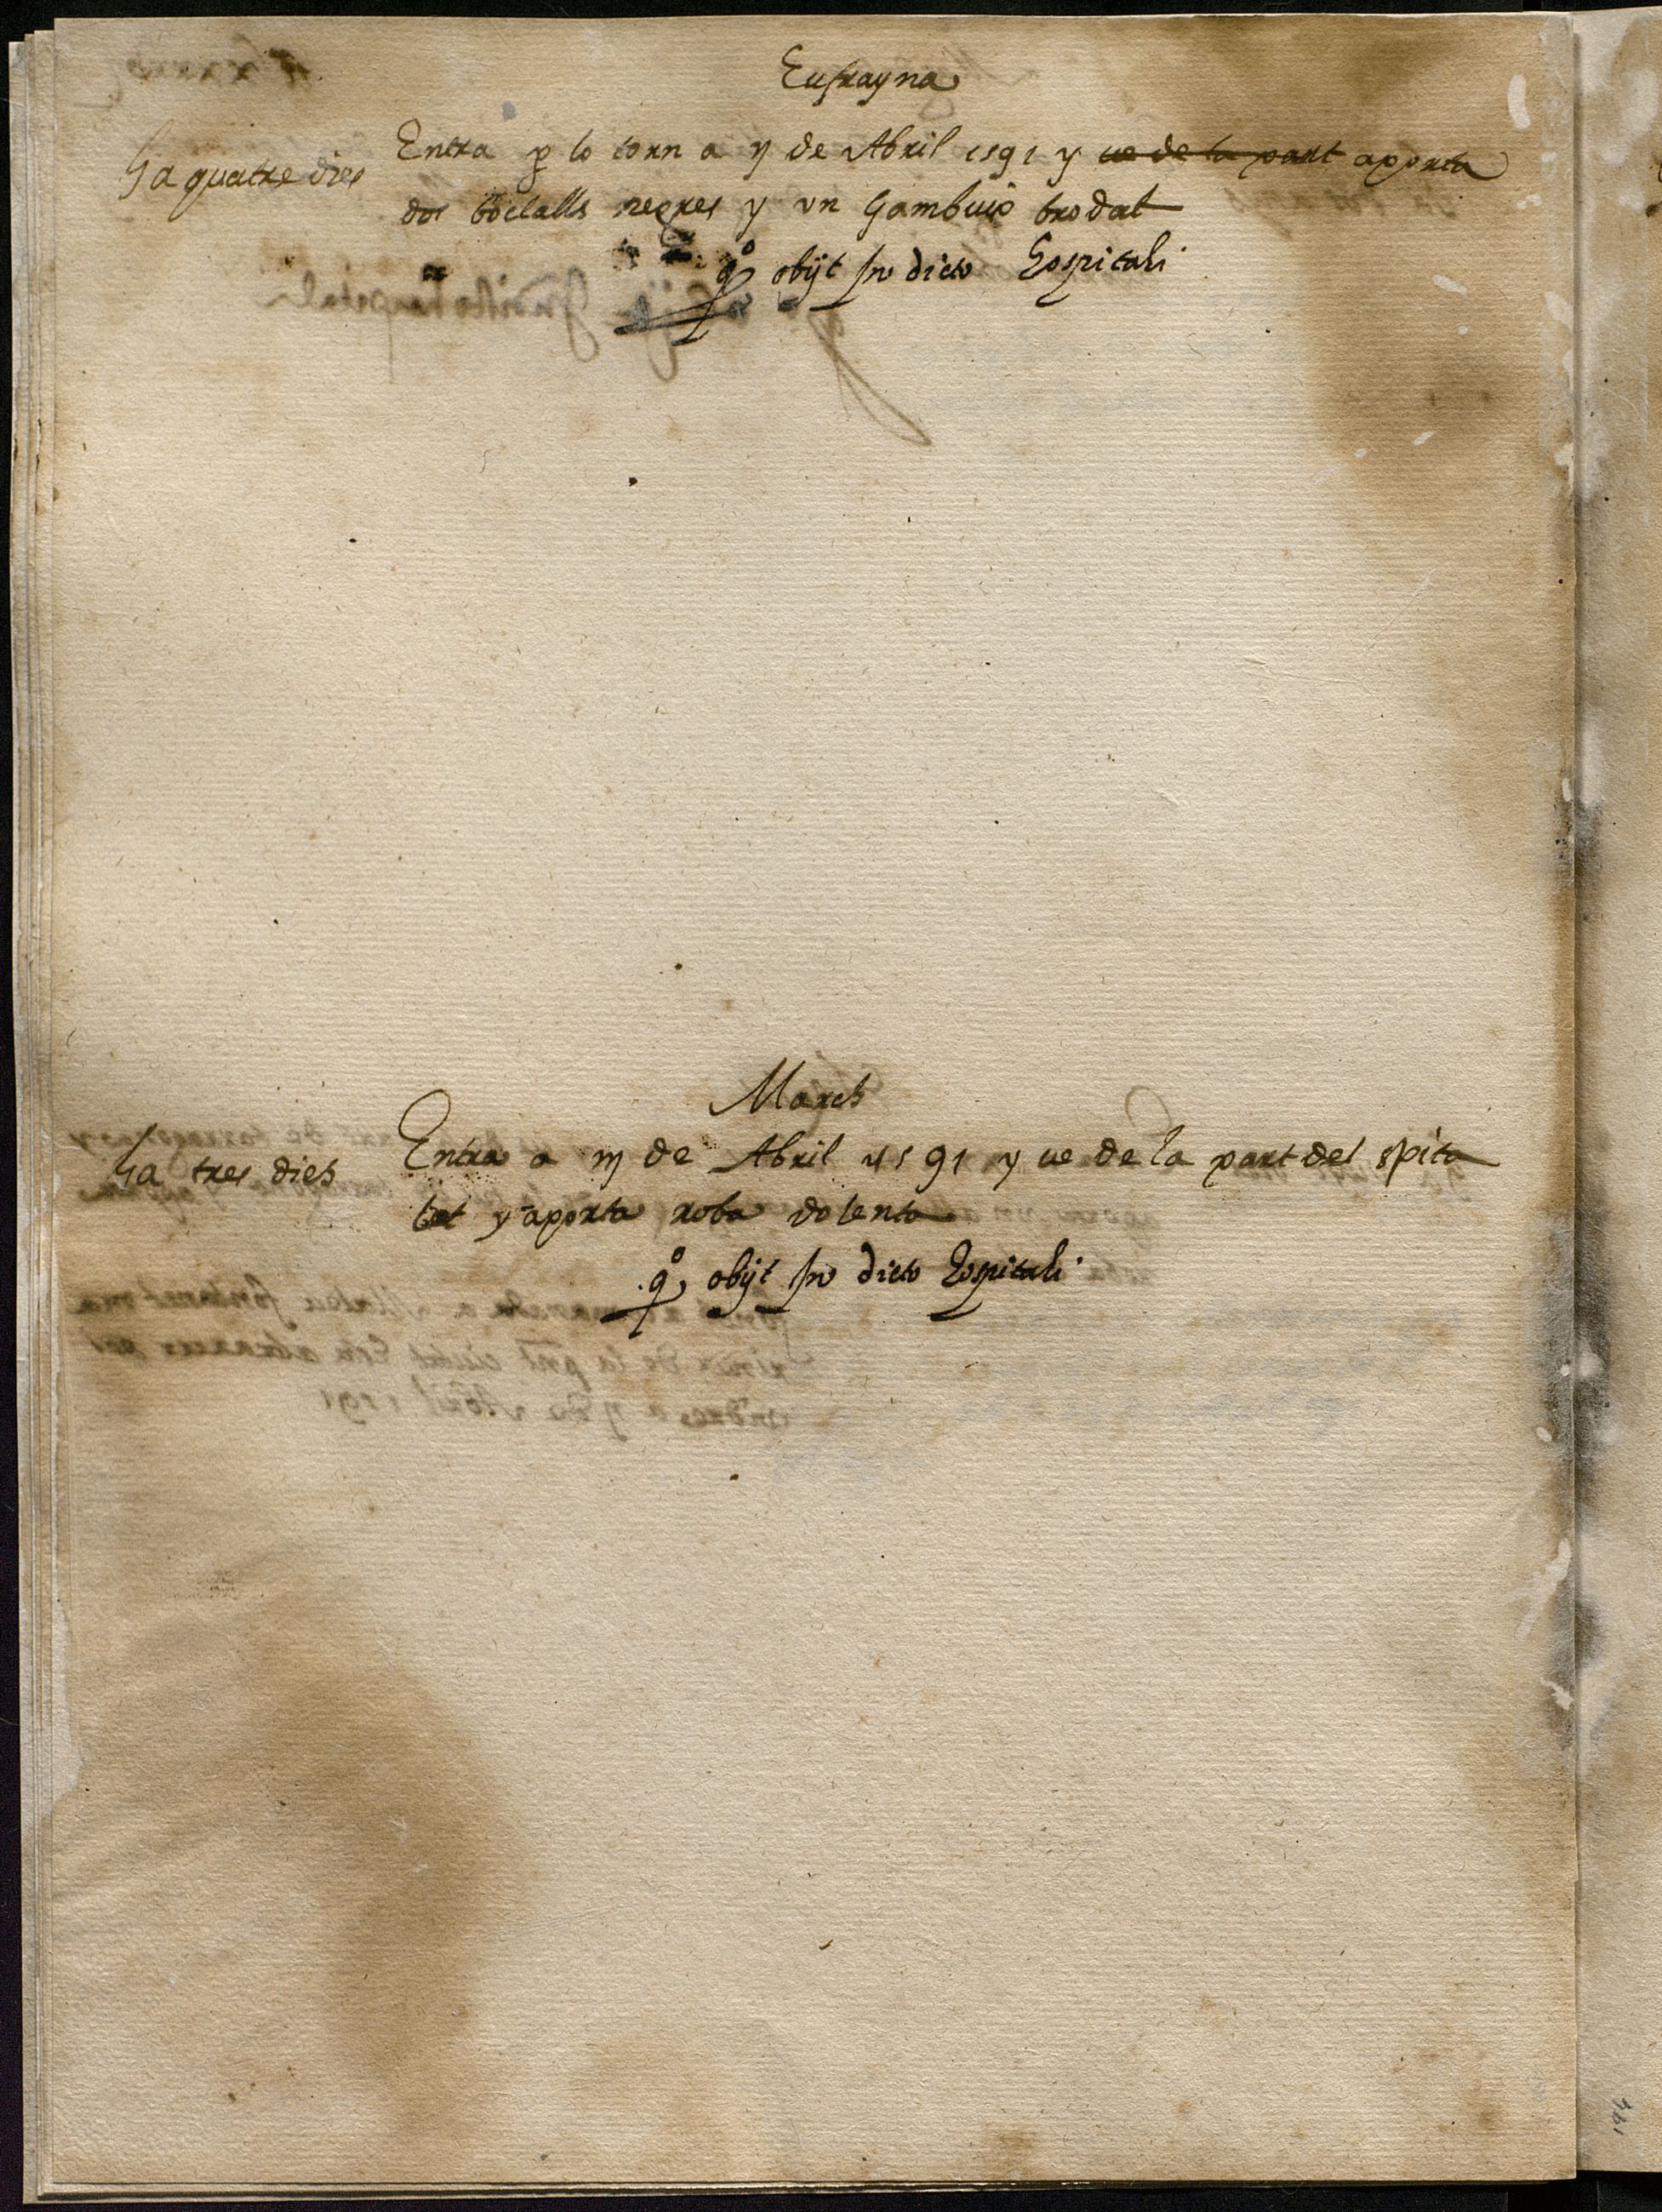 Eufrayna
ha quatre dies
Entra p lo torn a ij de Abril 1591 y ve de la part aporta
dos bocialls negres y vn gambuix brodat
q° obijt in dicto Hospitali
March
ha tres dies
Entra a iij de Abril 1591 y ve de la part del spita
let y aporta roba dolenta
q° obijt in dicto Hospitali